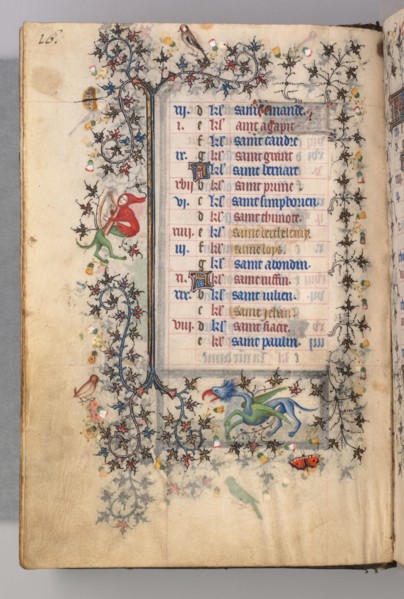 vij. d kł saint
i. e kł saint agapit
f kł saint
ix. g kł saint
A kł saint bernart
xvii b kł saint prime
vi. c kł saint simphorien
d kł saint thimote
xiiii e kł saint berthelemy
iii. f kł saint loys
g kł saint abondin
xi. A kł saint ruffin
xix. b kł saint iulien
c kł saint jehan
viii d kł saint fiacre
e kł saint paulin